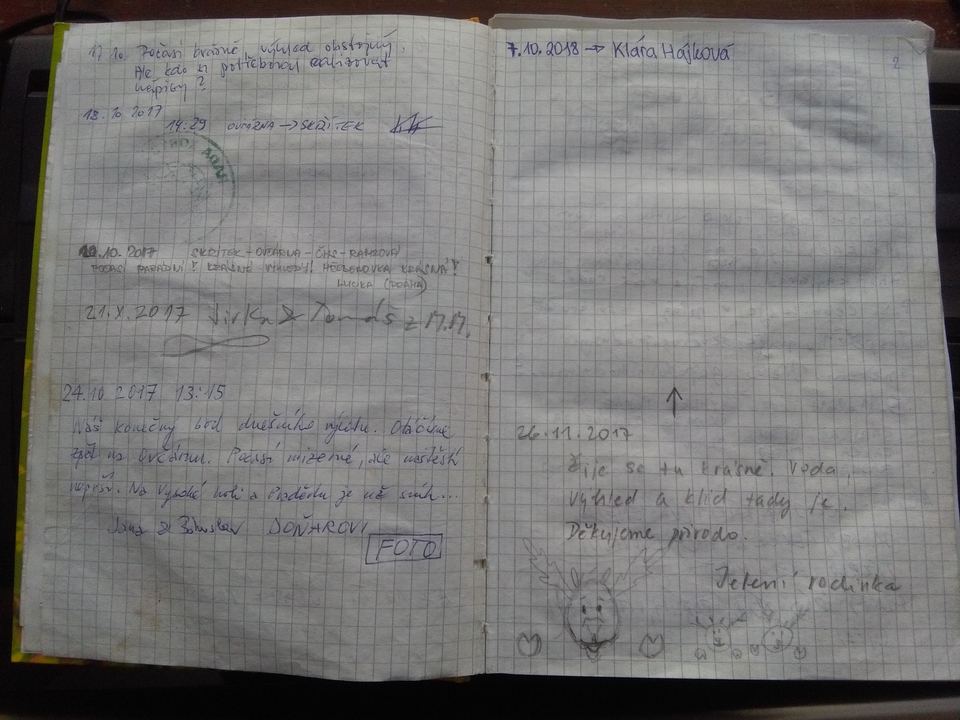 17.10. Počasí krásné, výhled obstojný.
Ale kdo má potřebu realizovat
nápisy?
18.10.2017
14:29 OVČÁRNA → SKŘÍTEK
19.10.2017 SKŘÍTEK - OVČÁRNA - ČHS - RAMZOVÁ
POČASÍ PARÁDNÍ! KRÁSNÉ VÝHLEDY! HŘEBENOVKA KRÁSNÁ!
LUCKA
21.X.2017 Jirka & Tomáš z M.M.
24.10 2017 13:15
Náš konečný bod dnešního výletu. Otáčíme
zpět na Ovčárnu. Počasí mizerné, ale naštěstí
neprší. Na Vysoké holi a Pradědu je už sníh...
Jana & Bohuslav DOŇAROVI
FOTO
7.10.2018 → Klára Hájková
2
↑
26.11.2017
Žije se tu krásně. Voda,
výhled a klid tady je.
Děkujeme přírodo.
Jelení rodinka